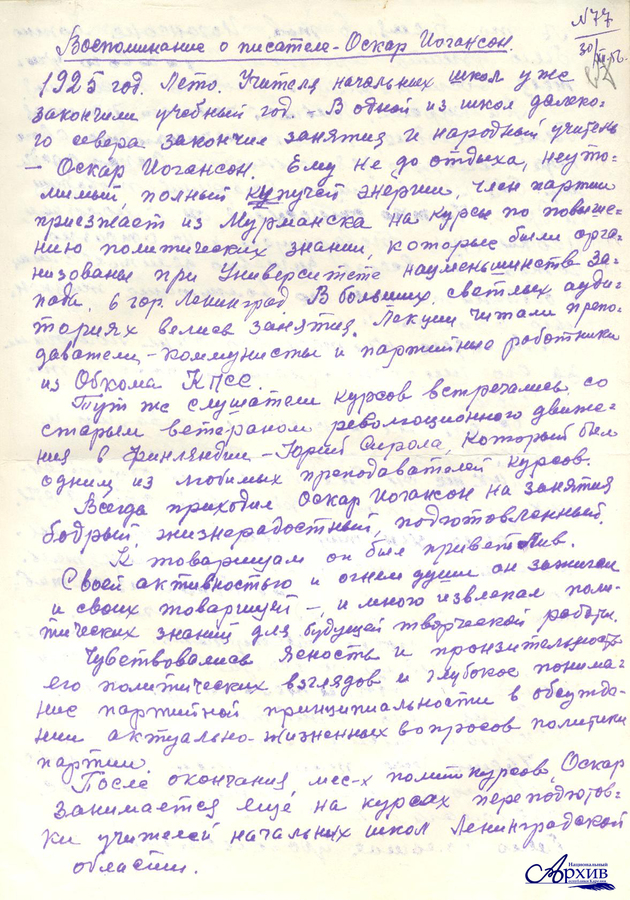 N 77
30/XII-56.
Воспоминание о писателе-Оскар Иогансон.
1925 год. Лето. Учителя начальных школ уже
закончили учебный год. В одной из школ далеко-
го севера закончил занятия и народный учитель
— Оскар Иогансон. Ему не до отдыха, неуто-
мимый, полный кипучей энергии. Член партии
приезжает из Мурманска на курсы по повыше-
нию политических знании, которые были орга-
низованы при Университете нацменьшинств За-
пада, в гор. Ленинград. В больших, светлых, ауди-
ториях велись занятия. Лекции читали препо-
даватели-коммунисты и партийные работники
из Обкома КПСС.
Тут же слушатели курсов встречались со
старым ветераном революционного движе-
ния в Финляндии-Юрий Сирола, который был
одним из любимых преподавателей курсов.
Всегда приходил Оскар Иогансон на занятия
бодрый, жизнерадостный, подготовленный.
К товарищам он был приветлив.
Своей активностью и огнем души он зажигал
и своих товарищей -, и много извлекал поли-
тических знаний для будущей творческой работы.
Чувствовались ясность и пронзительность
его политических взглядов и глубокое понима-
ние партийной принципиальности в обсужде-
нии актуально-жизненных вопросов политики
партии.
После окончания, мес-х политкурсов, Оскар
занимается еще на курсах переподготов-
ки учителей начальных школ Ленинградской
области.
Национальный
Архив
Республики Карелия